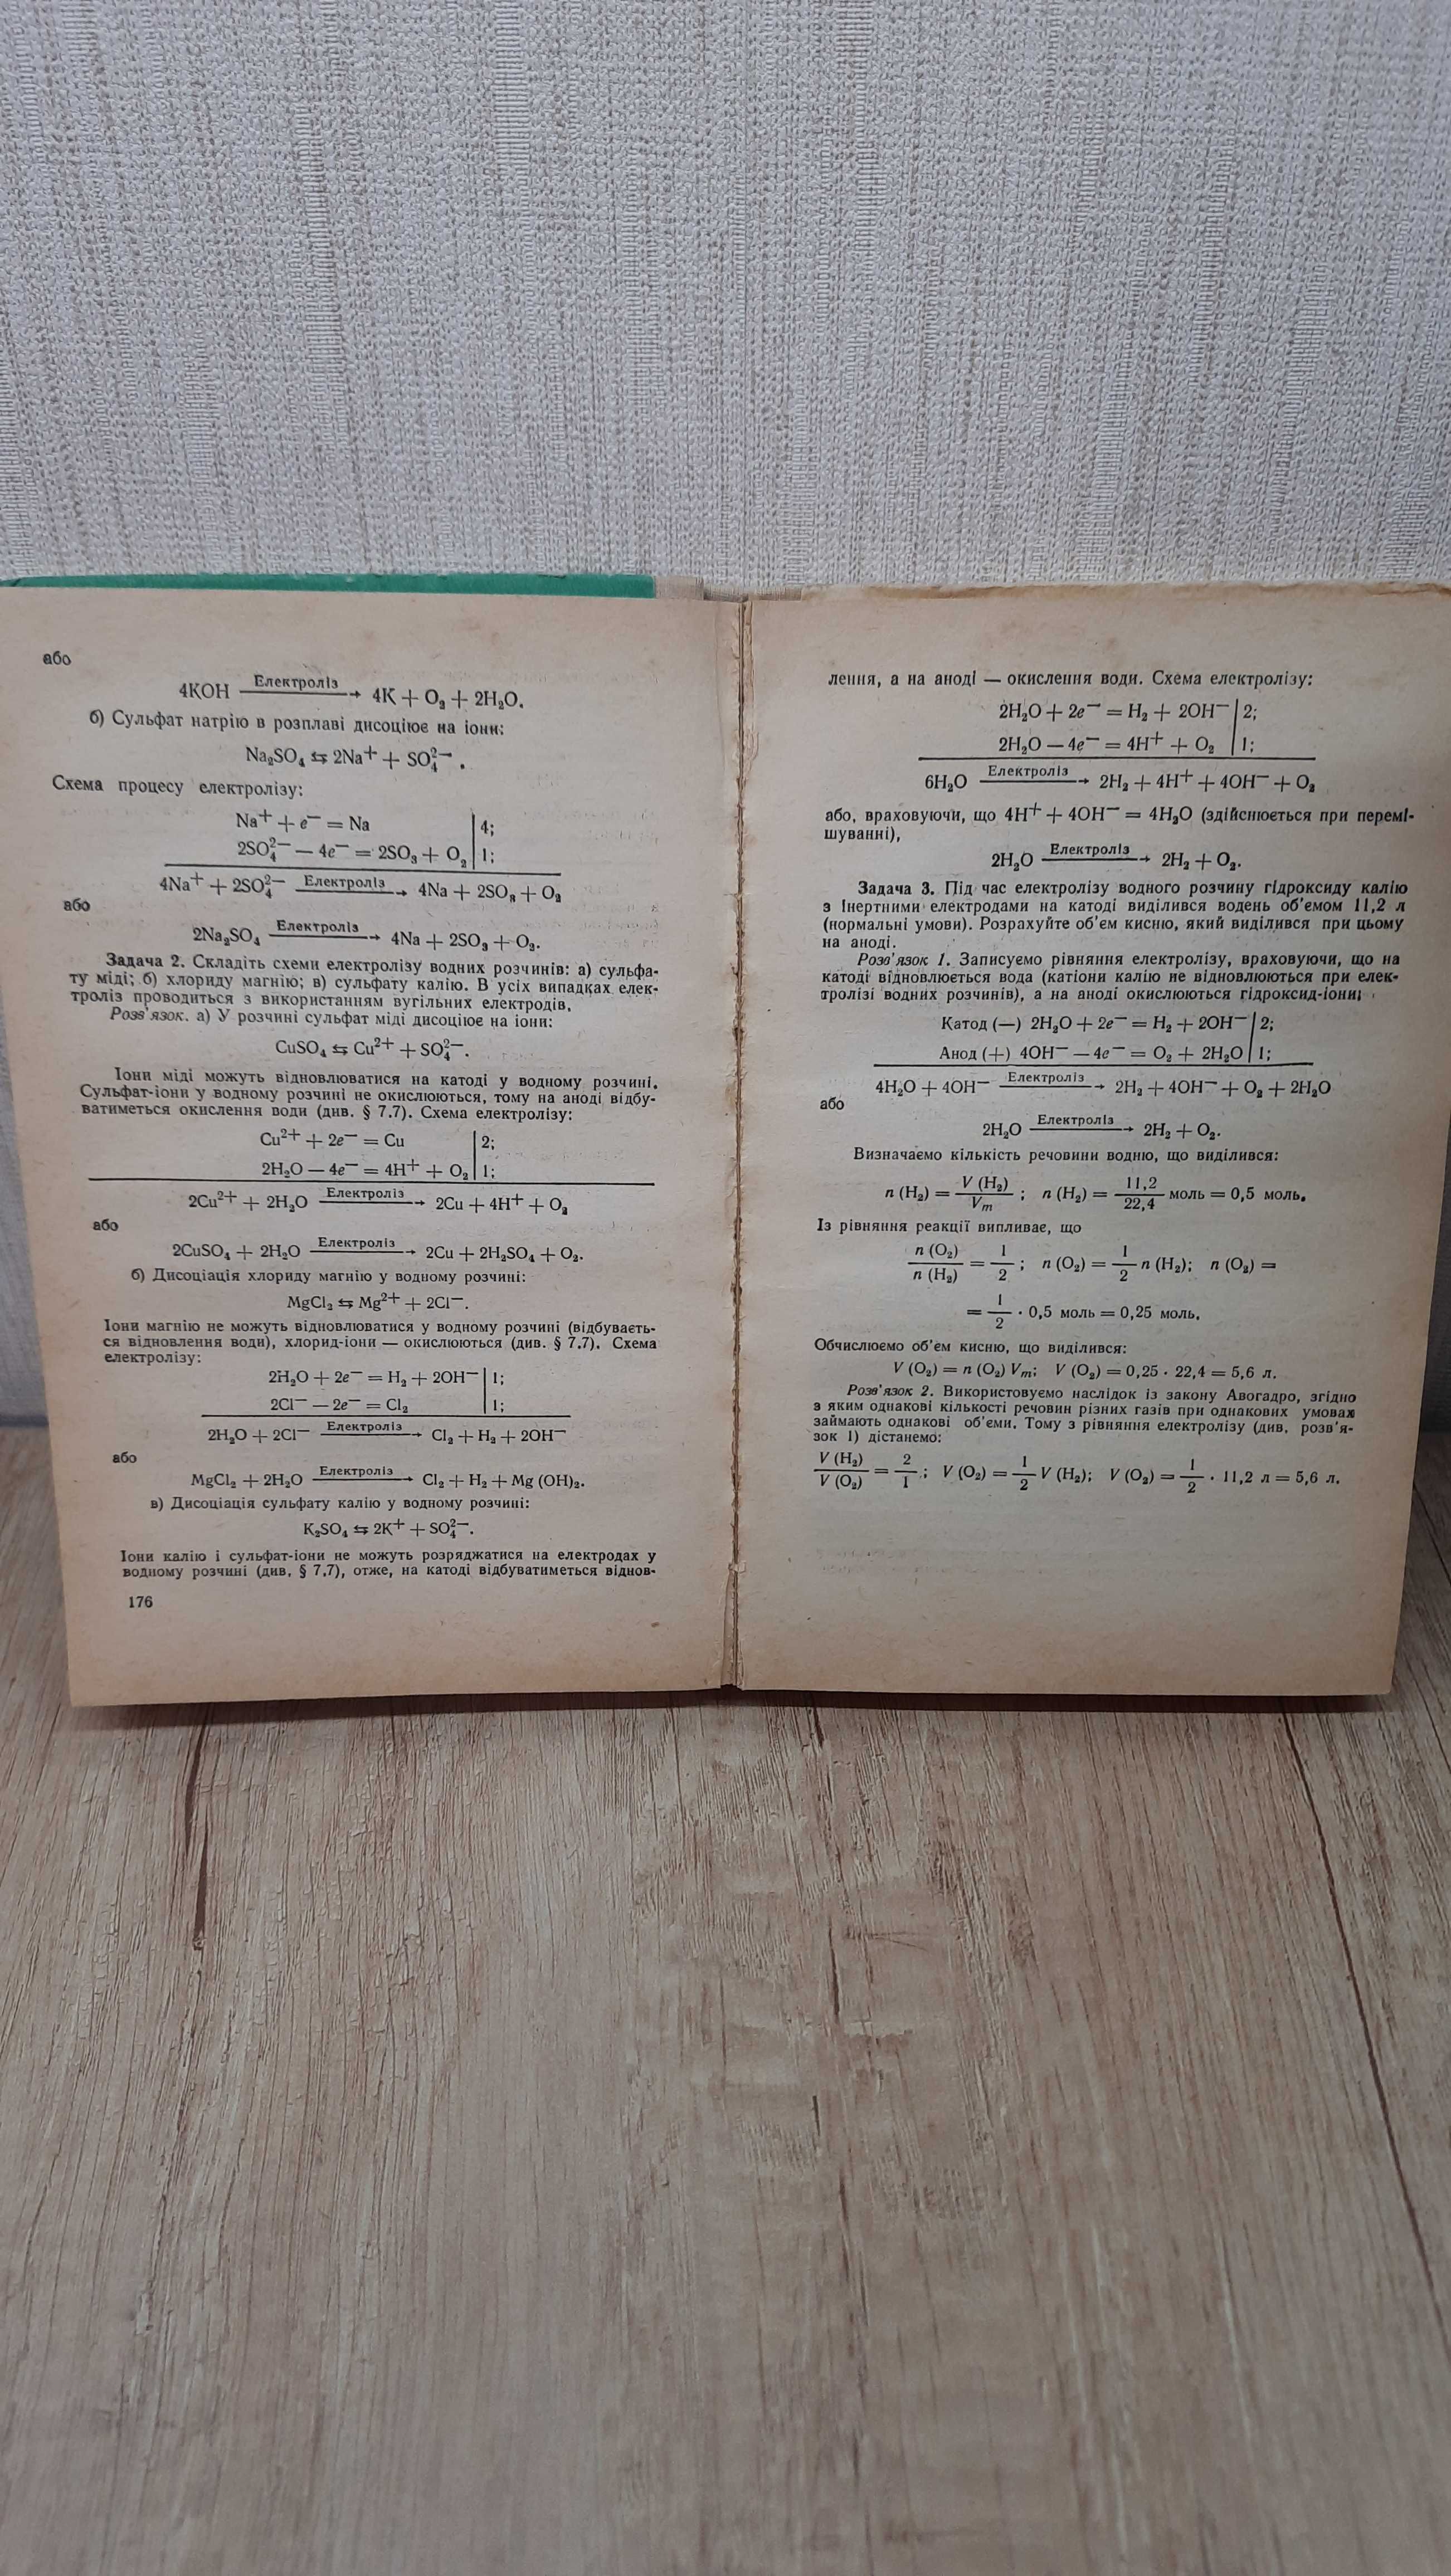 або
4KOH Електроліз → 4K + O₂ + 2H₂O.
б) Сульфат натрію в розплаві дисоціює на іони:
Na₂SO₄ ⇆ 2Na⁺ + SO₄²⁻.
Схема процесу електролізу:
Na⁺ + e⁻ = Na | 4;
2SO₄²⁻ — 4e⁻ = 2SO₃ + O₂ | 1;
4Na⁺ + 2SO₄²⁻ Електроліз → 4Na + 2SO₃ + O₂
або
2Na₂SO₄ Електроліз → 4Na + 2SO₃ + O₂.
Задача 2. Складіть схеми електролізу водних розчинів: а) сульфа-
ту міді; б) хлориду магнію; в) сульфату калію. В усіх випадках елек-
троліз проводиться з використанням вугільних електродів.
Розв'язок. а) У розчині сульфат міді дисоціює на іони:
CuSO₄ ⇆ Cu²⁺ + SO₄²⁻.
Іони міді можуть відновлюватися на катоді у водному розчині.
Сульфат-іони у водному розчині не окислюються, тому на аноді відбу-
ватиметься окислення води (див. § 7.7). Схема електролізу:
Cu²⁺ + 2e⁻ = Cu | 2;
2H₂O — 4e⁻ = 4H⁺ + O₂ | 1;
2Cu²⁺ + 2H₂O Електроліз → 2Cu + 4H⁺ + O₂
або
2CuSO₄ + 2H₂O Електроліз → 2Cu + 2H₂SO₄ + O₂.
б) Дисоціація хлориду магнію у водному розчині:
MgCl₂ ⇆ Mg²⁺ + 2Cl⁻.
Іони магнію не можуть відновлюватися у водному розчині (відбуваєть-
ся відновлення води), хлорид-іони — окислюються (див. § 7.7). Схема
електролізу:
2H₂O + 2e⁻ = H₂ + 2OH⁻ | 1;
2Cl⁻ — 2e⁻ = Cl₂ | 1;
2H₂O + 2Cl⁻ Електроліз → Cl₂ + H₂ + 2OH⁻
або
MgCl₂ + 2H₂O Електроліз → Cl₂ + H₂ + Mg (OH)₂.
в) Дисоціація сульфату калію у водному розчині:
K₂SO₄ ⇆ 2K⁺ + SO₄²⁻.
Іони калію і сульфат-іони не можуть розряджатися на електродах у
водному розчині (див. § 7.7), отже, на катоді відбуватиметься віднов-
176
лення, а на аноді — окислення води. Схема електролізу:
2H₂O + 2e⁻ = H₂ + 2OH⁻ | 2;
2H₂O — 4e⁻ = 4H⁺ + O₂ | 1;
6H₂O Електроліз → 2H₂ + 4H⁺ + 4OH⁻ + O₂
або, враховуючи, що 4H⁺ + 4OH⁻ = 4H₂O (здійснюється при перемі-
шуванні),
2H₂O Електроліз → 2H₂ + O₂.
Задача 3. Під час електролізу водного розчину гідроксиду калію
з інертними електродами на катоді виділився водень об'ємом 11,2 л
(нормальні умови). Розрахуйте об'єм кисню, який виділився при цьому
на аноді.
Розв'язок 1. Записуємо рівняння електролізу, враховуючи, що на
катоді відновлюється вода (катіони калію не відновлюються при елек-
тролізі водних розчинів), а на аноді окислюються гідроксид-іони:
Катод (—) 2H₂O + 2e⁻ = H₂ + 2OH⁻ | 2;
Анод (+) 4OH⁻ — 4e⁻ = O₂ + 2H₂O | 1;
4H₂O + 4OH⁻ Електроліз → 2H₂ + 4OH⁻ + O₂ + 2H₂O
або
2H₂O Електроліз → 2H₂ + O₂.
Визначаємо кількість речовини водню, що виділився:
n (H₂) = V (H₂) / Vₘ ; n (H₂) = 11,2 / 22,4 моль = 0,5 моль.
Із рівняння реакції випливає, що
n (O₂) / n (H₂) = 1 / 2 ; n (O₂) = 1 / 2 n (H₂); n (O₂) =
= 1 / 2 · 0,5 моль = 0,25 моль.
Обчислюємо об'єм кисню, що виділився:
V (O₂) = n (O₂) Vₘ; V (O₂) = 0,25 · 22,4 = 5,6 л.
Розв'язок 2. Використовуємо наслідок із закону Авогадро, згідно
з яким однакові кількості речовин різних газів при однакових умовах
займають однакові об'єми. Тому з рівняння електролізу (див. розв'я-
зок 1) дістанемо:
V (H₂) / V (O₂) = 2 / 1 ; V (O₂) = 1 / 2 V (H₂); V (O₂) = 1 / 2 · 11,2 л = 5,6 л.